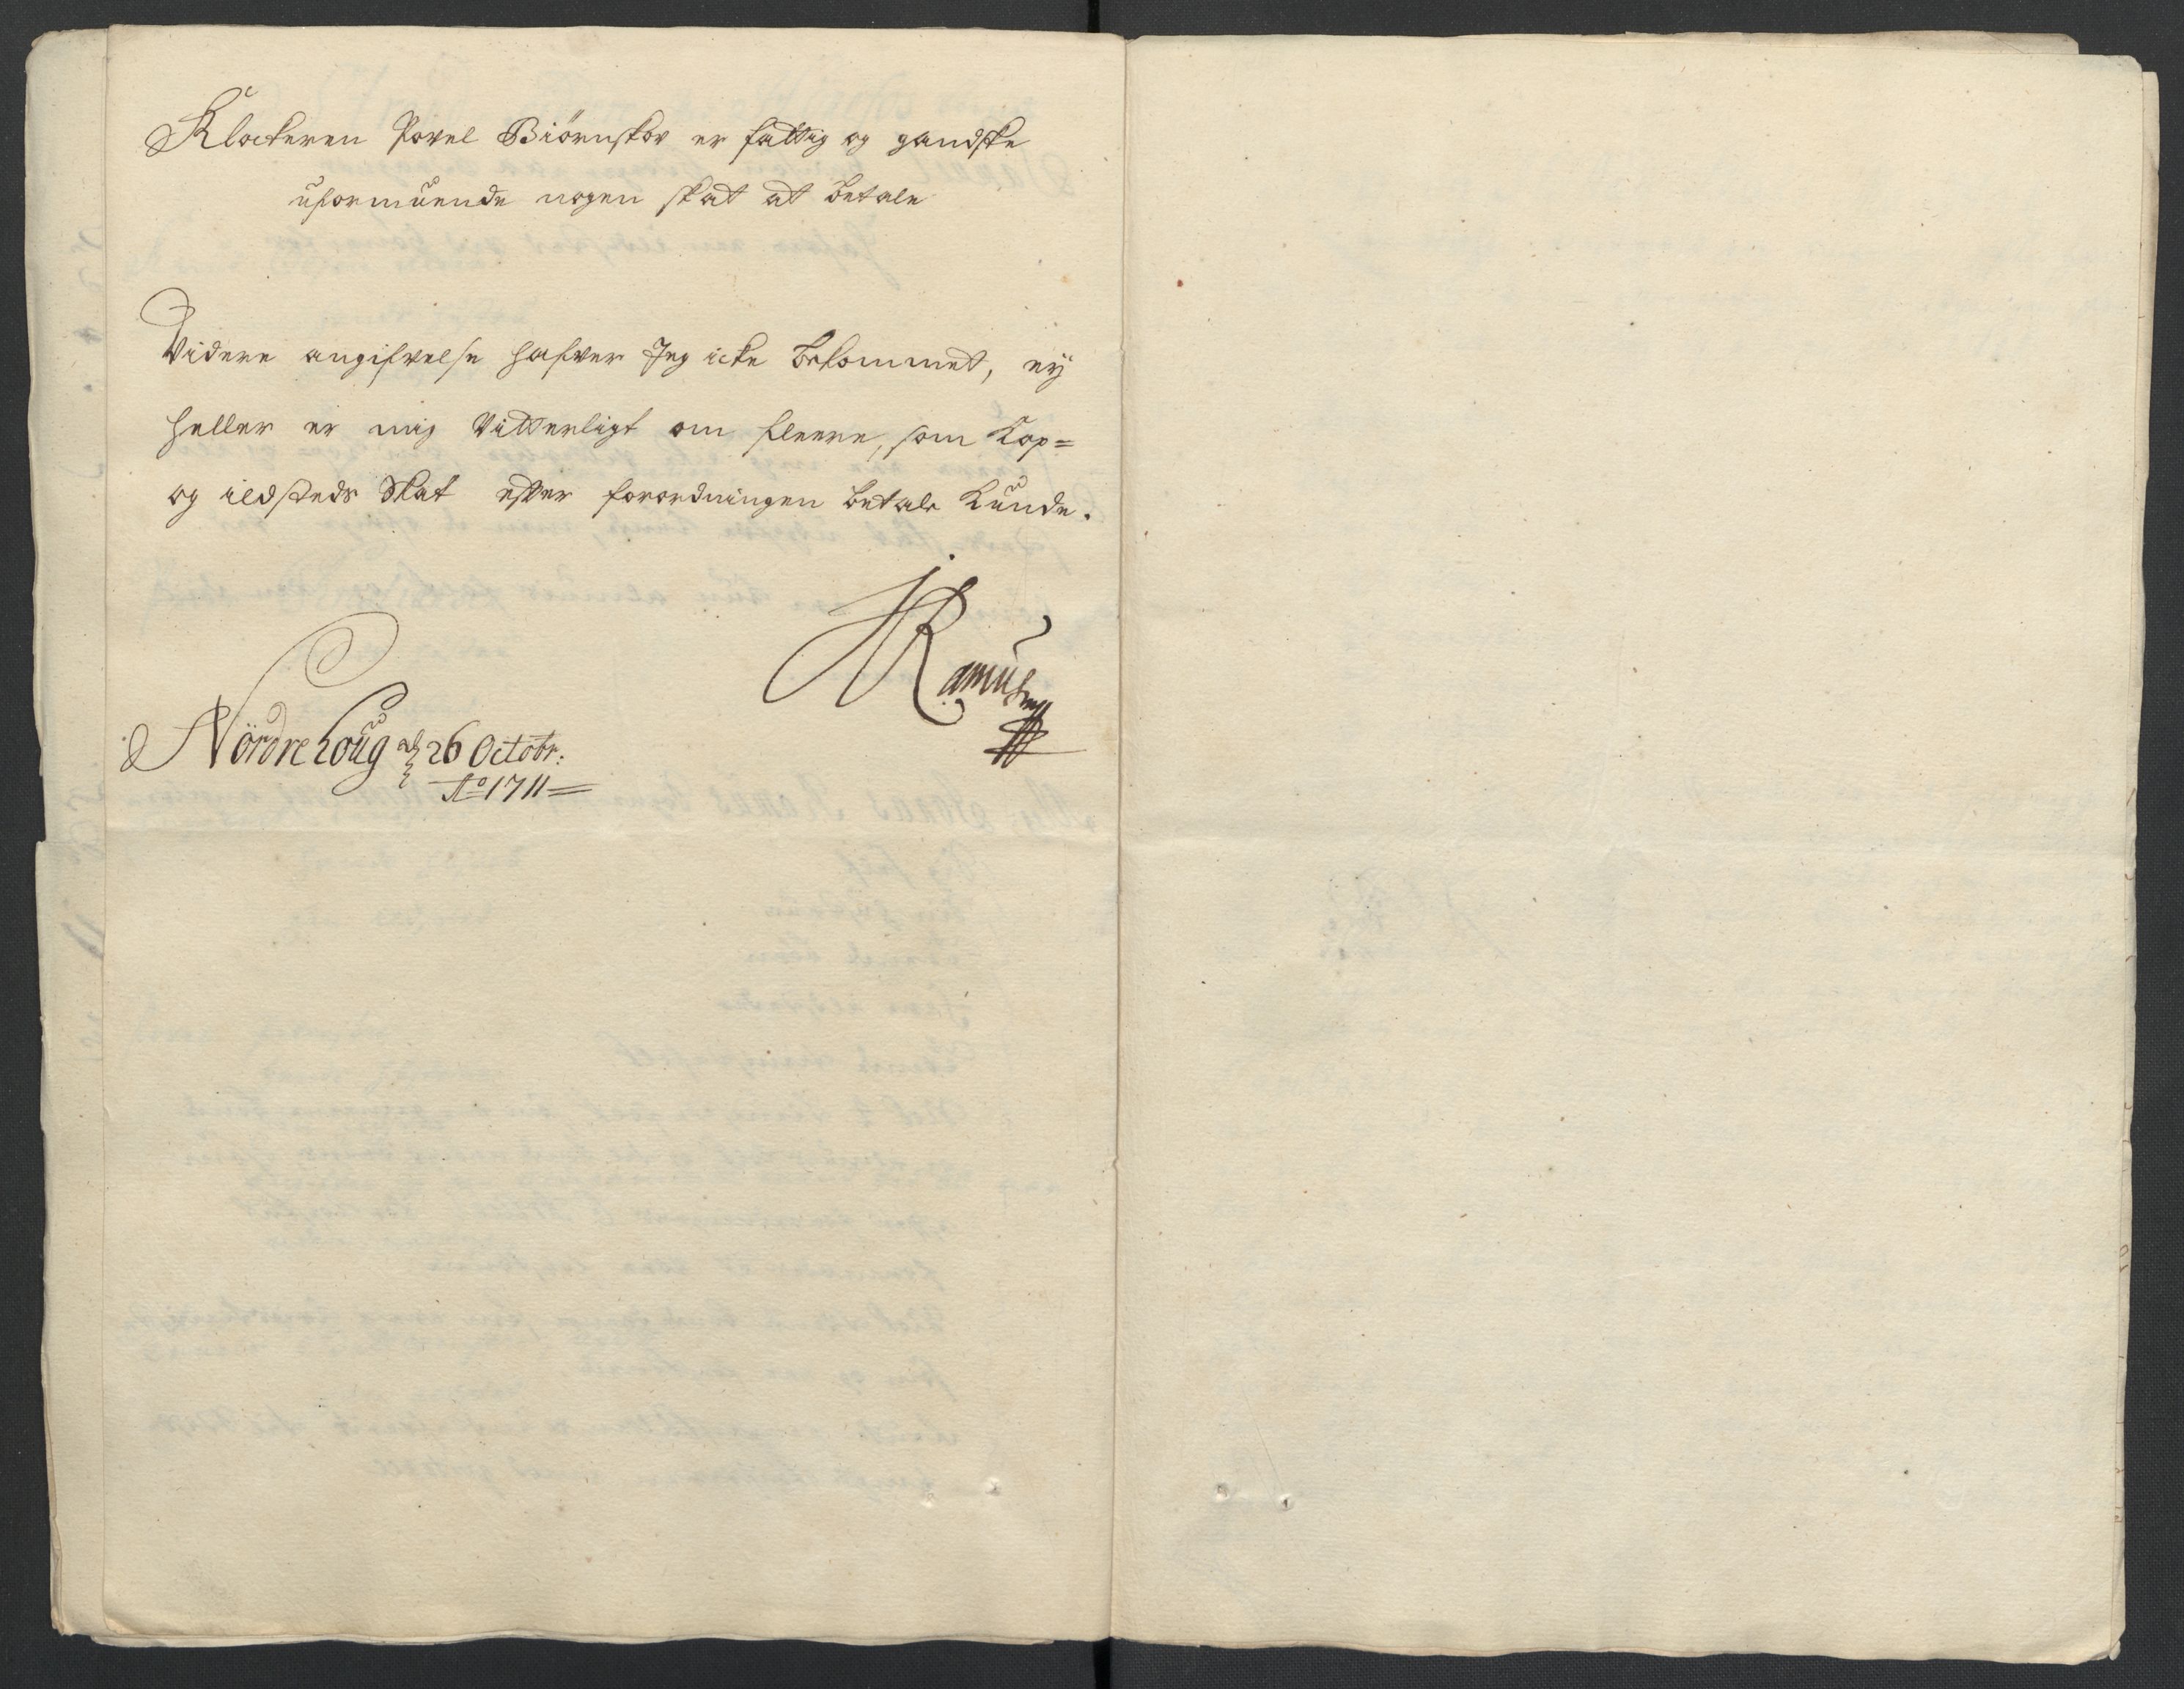 Klockeren Povel Biörnskov er fattig og gandske
uformuende nogen skat at betale
Videre angifvelse hafver Jeg icke bekommet, eÿ
heller er mig Vitterligt om fleere, som Kop=
og ildsteds Skat efter forordningen betale kunde.
JRamus
Nördrehoug d 26 Octobr:
Ao 1711